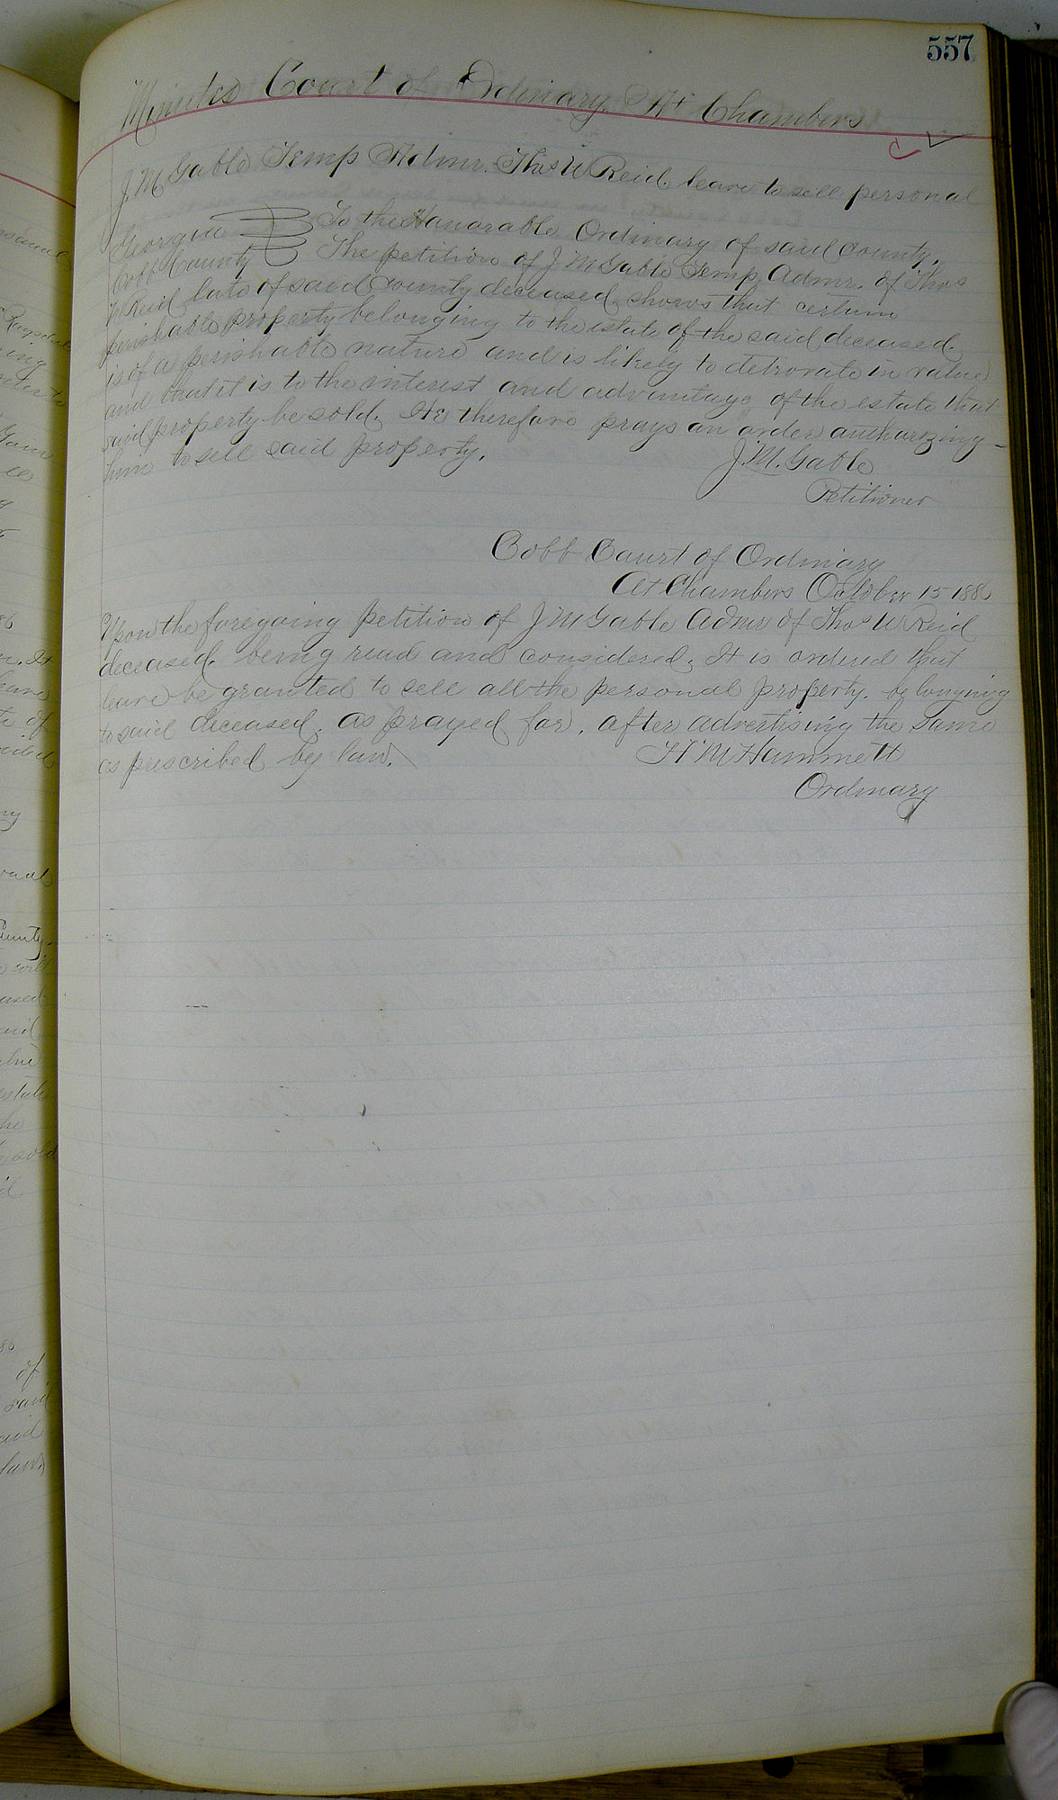 557
Minutes Court of Ordinary At Chambers
J. M. Gable Temp Admr. Thos W Reid. leave to sell personal
Georgia To the Honorable Ordinary of said county.
Cobb County The petition of J M Gable Temp, Admr. of Thos
W Reid late of said county deceased, shows that certain
perishable property belonging to the estate of the said deceased.
is of a perishable nature and is likely to detrorate in value
and that it is to the interest and advantage of the estate that
said property be sold. He therefore prays an order autharizing
him to sell said property.
J. M. Gable
Petitioner
Cobb Court of Ordinary
At Chambers October 15 1886
Upon the foregoing petition of J M Gable Admr of Thos W Reid
deceased. being read and considered. It is ordered that
leave be granted to sell all the personal property. belonging
to said deceased. as prayed for. after advertising the same
as prescribed by law.
H M Hammett
Ordinary
County
of
said